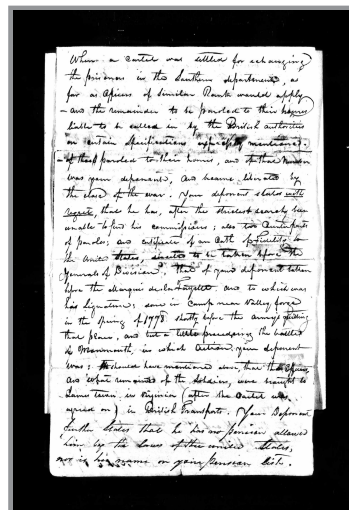 When a cartel was settled for exchanging
the prisoners in the Southern department, as
far as Officers of Similar Rank would apply
— and the remainder to be paroled to their homes
liable to be called in by the British authorities
on certain specifications expressly mentioned.
— of those paroled to their homes, and of that number
was your deponent, and became liberated by
the close of the war. Your deponent states with
regret, that he has, after the strictest search been
unable to find his commissions; also two Counterparts
of paroles; and certificate of an Oath of fidelity to
the United States, directed to be taken before the
Generals of Divisions, that of your deponent taken
before the Marquis de La Fayette and to which was
his signature; done in Camp near Valley forge
in the Spring of 1778 shortly before the army's
that place, and but a little preceeding the battle
of Monmouth, in which Action, your deponent
was: Should have mentioned above, that the Officers
and what remained of the Soldiers, were brought to
James town in Virginia (after the Cartel was
agreed on) in British Transports. Your Deponent
further States that he has no pension allowed
him by the laws of the united States,
nor is his name on any pension list.